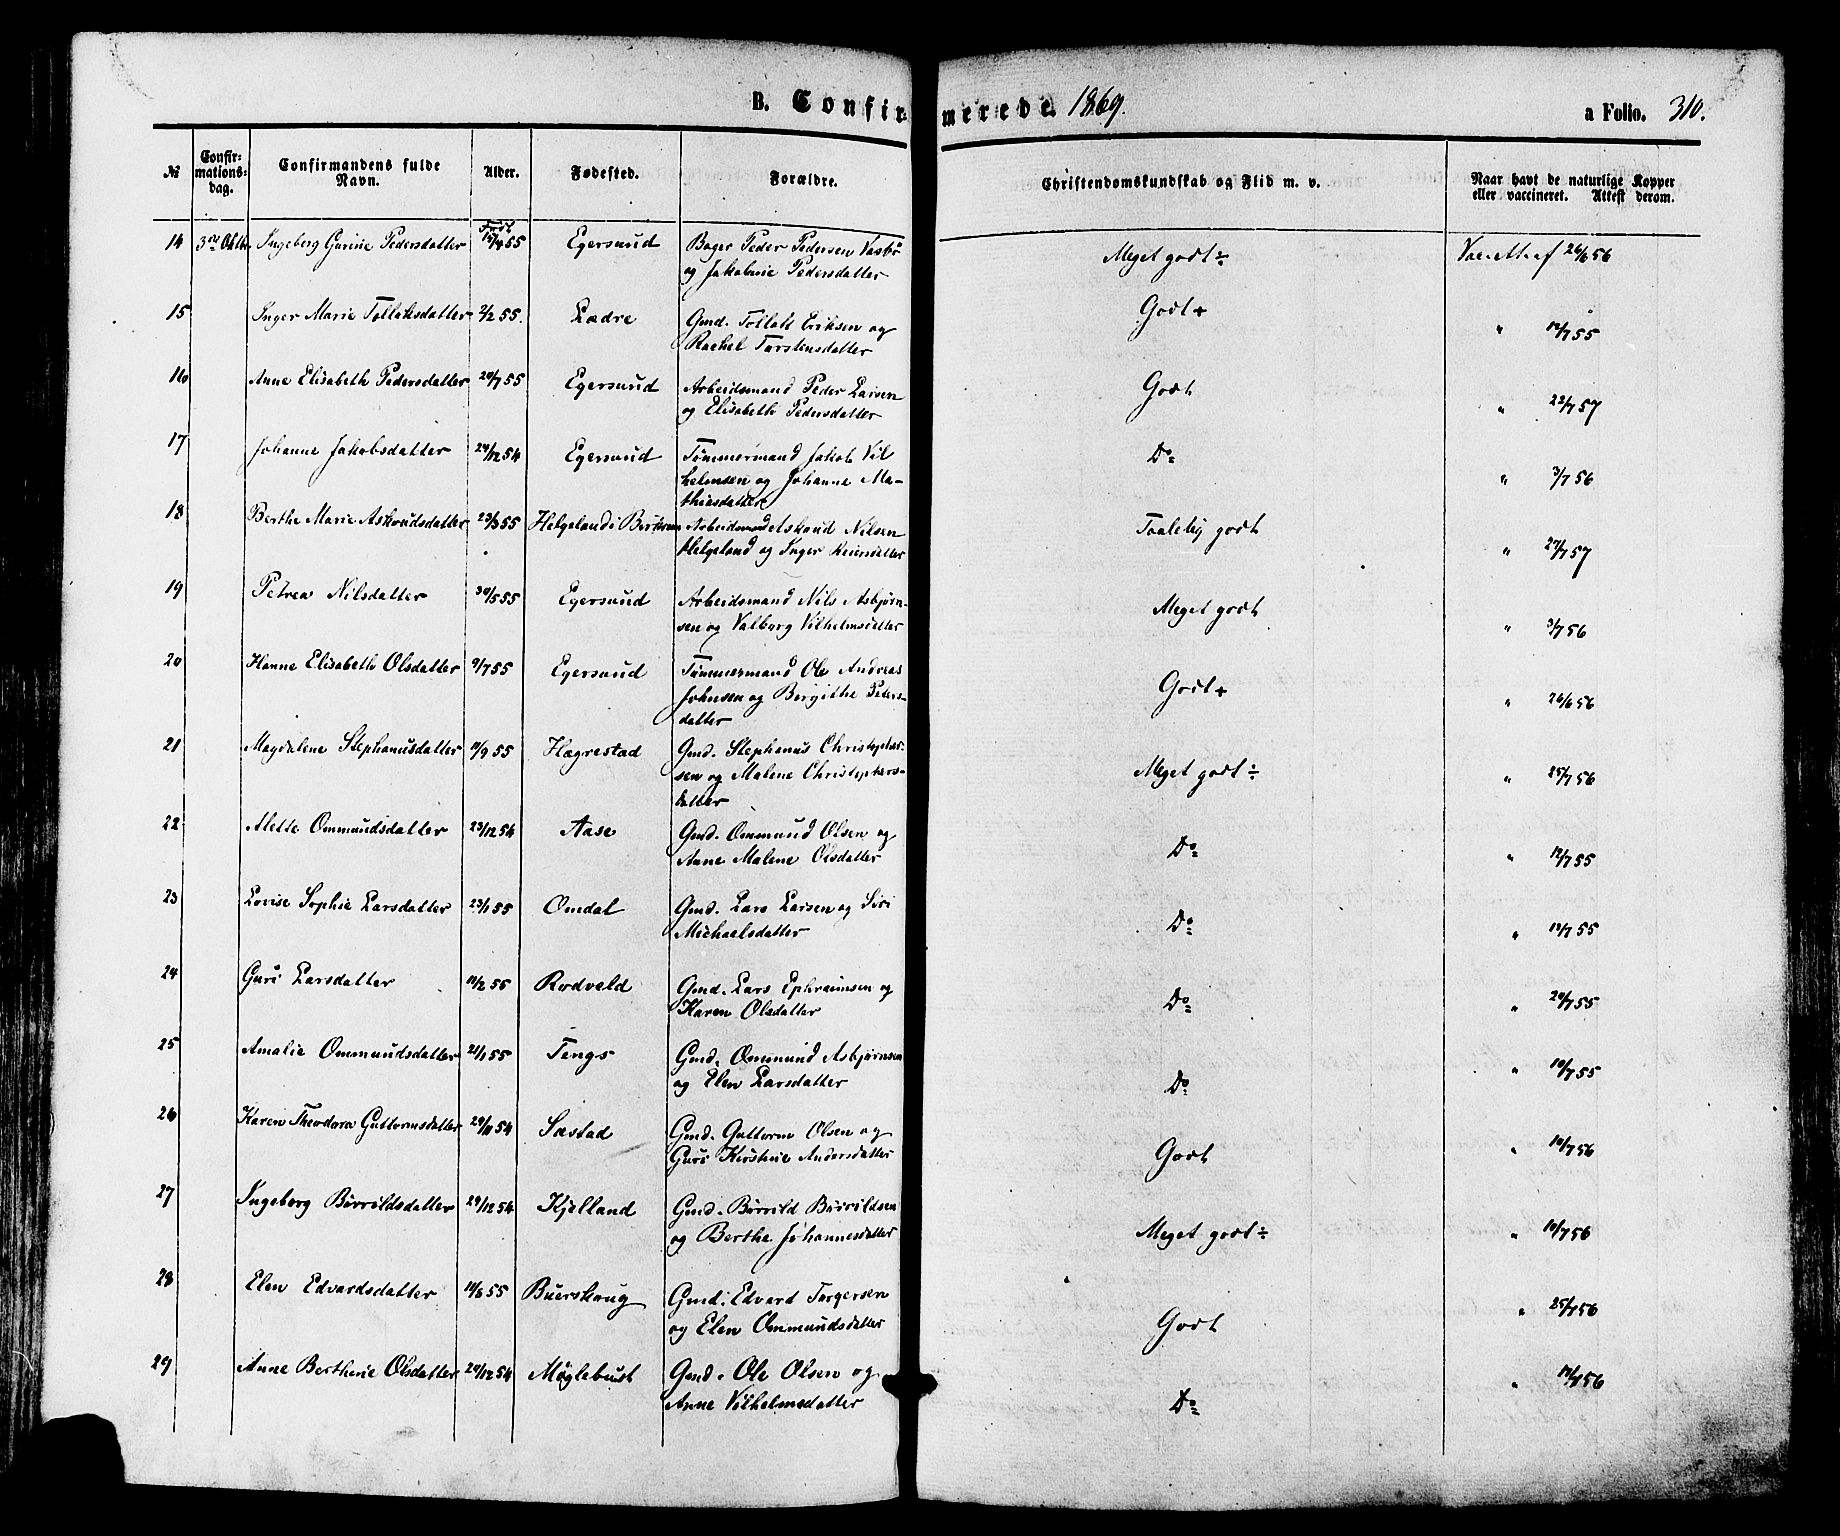 B. Confirmerede. 1869. a Folio. 310.
№ Confirmationsdag. Confirmandens fulde Navn. Alder. Fødested. Forældre. Christendomskundskab og Flid m. v. Naar havt de naturlige Kopper eller vaccineret. Attest derom.
Født
14 Ingeborg Gurine Pedersdatter 55 Egersund Bager Peder Pedersen Meget godt ÷ 26/6 56
og Jakobine Pedersdatter
15 Inger Marie Tollaksdatter 2/2 55. Lædre Gmd. Tollak Eriksen og Godt + " 12/7 55
Rachel Torstensdatter
16 Anne Elisabeth Pedersdatter 20/7 55 Egersund Arbeidsmand Peder Larsen Godt " 22/7 57
og Elisabeth Pedersdatter
17 Johanne Jakobsdatter 24/12 54 Egersund Tømmermand Jakob Vil Do " 3/7 56
helmsen og Johanne Ma-
thiasdatter
18 Berthe Marie Askoudsdatter 23/3 55 Helgeland i Arbeidsmand Askoud Nilsen Taalelig godt " 27/7 57
Helgeland og Inger
19 Petrea Nilsdatter 30/5 55 Egersund Arbeidsmand Nils Asbjørn- Meget godt " 3/7 56
sen og Valborg Vilhelmsdatter
20 Hanne Elisabeth Olsdatter 9/7 55 Egersund Tømmermand Ole Andreas Godt + " 26/6 56
Johnsen og Bergithe Peders-
datter
21 Magdalene Stephanusdatter 11/9 55 Hægrestad Gmd. Stephanus Christopher- Meget godt ÷ " 25/7 56
sen og Malene Christophers-
datter
22 Mette Ommundsdatter 23/12 54 Aase Gmd. Ommund Olsen og Do " 12/7 55
Anne Malene Olsdatter
23 Lovise Sophie Larsdatter 23/1 55 Omdal Gmd. Lars Larsen og Siri Do " 12/7 55
Michaelsdatter
24 Guri Larsdatter 11/2 55 Rodvald Gmd. Lars Ephraimsen og Do " 20/7 55
Karen Olsdatter
25 Amalie Ommundsdatter 21/1 55 Tengs Gmd. Ommund Asbjørnsen Do " 10/7 55
og Elen Larsdatter
26 Karen Theodora Guttormsdatter 29/11 54 Sæstad Gmd. Guttorm Olsen og Godt " 10/7 56
Guri Kirstine Andersdatter
27 Ingeborg Børrildsdatter 29/12 54 Kjelland Gmd. Børrild Børrildsen Meget godt ÷ " 10/7 56
og Berthe Johannesdatter
28 Elen Edvardsdatter 11/6 55 Buerskoug Gmd. Edvard Torgersen Godt " 25/7 56
og Elen Ommundsdatter
29 Anne Berthine Olsdatter 29/12 54 Møglebust Gmd. Ole Olsen og Do "
Anne Vilhelmsdatter